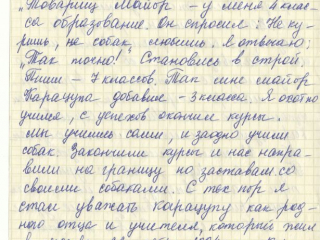 "Товарищ Майор - у меня 4 клас-
са образование. Он спросил: Не ку-
ришь, не собак, любишь. Я отвечаю:
"Так точно"! Становись в строй.
Пиши - 7 классов. Так мне майор
Карацупа добавил - 3 класса. Я охотно
учился, с успехов окончил курсы.
мы учились сами, и заодно учили
собак. Закончили курсы и нас напра-
вили на границу по заставам со
своими собаками. С тех пор я
стал уважать Карацупу как род-
ного отца и учителя, который